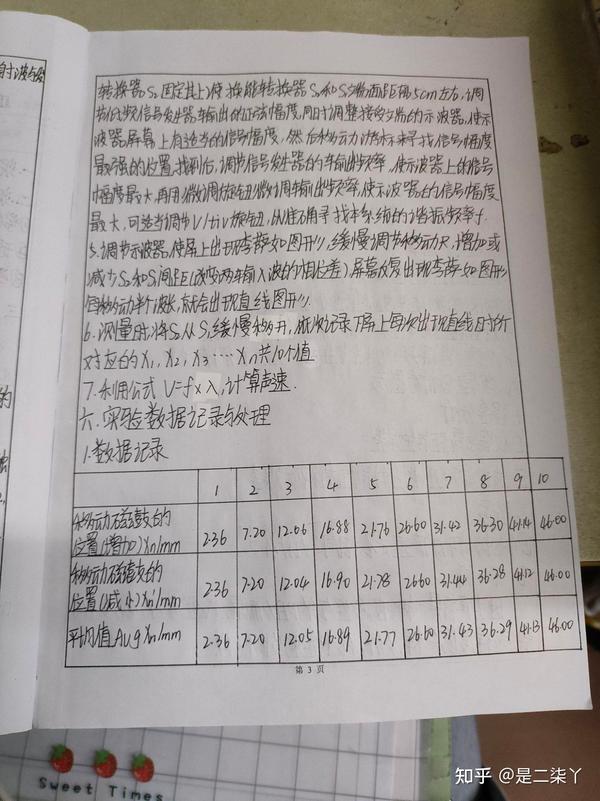 转换器S2固定其上)使换能转换器S2和S1端面距离5cm左右,调
节低频信号发生器输出的正弦幅度,同时调整接收端的示波器,使示
波器屏幕上有适当的信号幅度,然后移动游标来寻找信号幅度
最强的位置,找到后,调节信号发生器的输出频率,使示波器上的信号
幅度最大,再用微调旋钮微调输出频率,使示波器的信号幅度
最大,可适当调节V/div旋钮,从准确寻找本系统的谐振频率f.
5.调节示波器,使屏上出现李萨如图形,缓慢调节移动尺,增加或
减少S2和S1间距(改变两输入波的相位差)屏幕反复出现李萨如图形
每移动半个波长,就会出现直线图形.
6.测量时,将S2从S1缓慢移开,依次记录下屏上每次出现直线时所
对应的X1,X2,X3····Xn共10个值
7.利用公式 V=f×λ,计算声速.
六.实验数据记录与处理
1.数据记录
1 2 3 4 5 6 7 8 9 10
移动磁鼓的
位置(增加)Xn/mm 2.36 7.20 12.06 16.88 21.76 26.60 31.42 36.30 41.14 46.00
移动磁鼓的
位置(减小)Xn'/mm 2.36 7.20 12.04 16.90 21.78 26.60 31.44 36.28 41.12 46.00
平均值Avg Xn/mm 2.36 7.20 12.05 16.89 21.77 26.60 31.43 36.29 41.13 46.00
第 3 页
Sweet Times
知乎 @是二柒丫